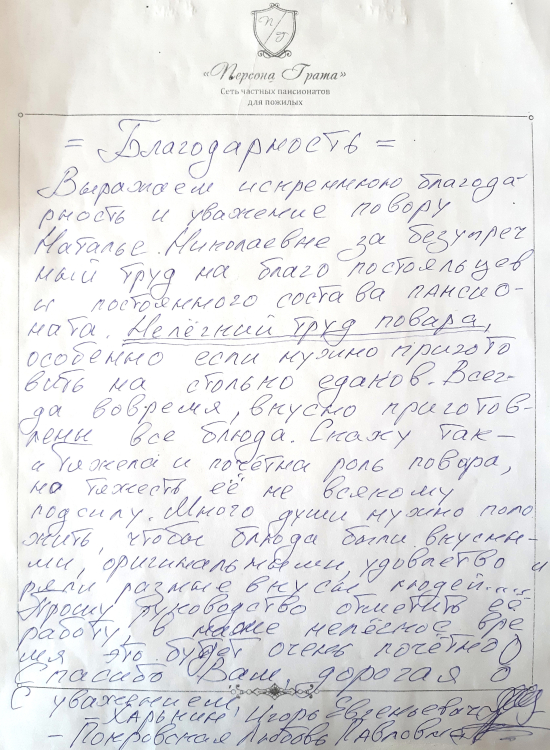 П/Г
«Персона Грата»
Сеть частных пансионатов
для пожилых
= Благодарность =
Выражаем искреннюю благода-
рность и уважение повору
Наталье Николаевне за безупреч
ный труд на благо постояльцев
и постоянного состава пансио-
ната. Нелёгкий труд повара,
особенно если нужно пригото
вить на столько едаков. Всег-
да вовремя, вкусно приготов-
лены все блюда. Скажу так –
и тяжела и почётна роль повара,
но тяжесть её не всякому
подсилу. Много души нужно поло
жить, чтобы блюда были вкусны-
ми, оригинальными, удовлетво
ряли разные вкусы людей....
Прошу руководство отметить её
работу, в наше нелёгкое вре
мя это будет очень почётно
Спасибо Вам, дорогая
С уважением,
– Харькин Игорь Евгеньевич
– Покровская Любовь Павловна